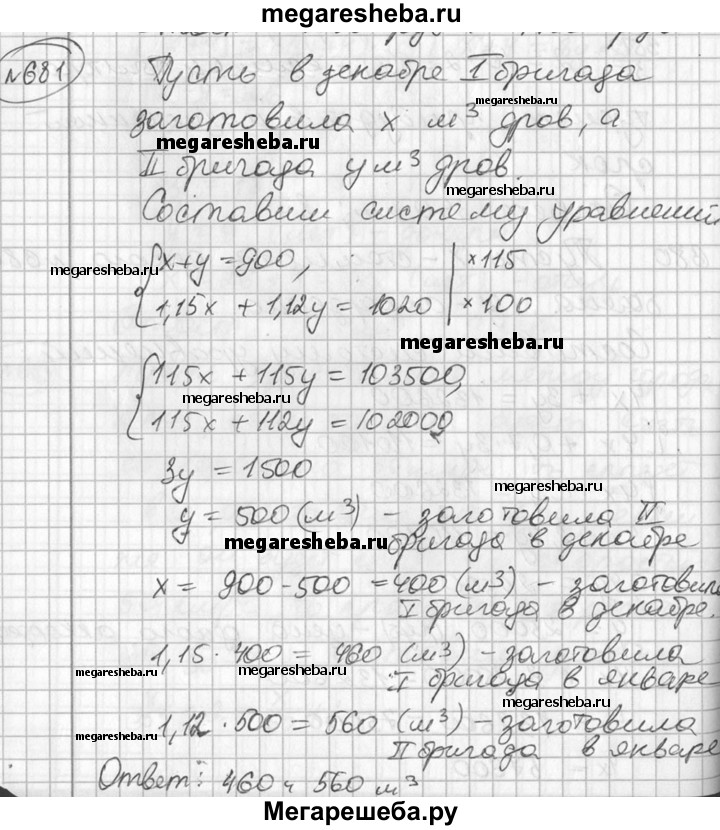 megaresheba.ru
№681
Пусть в декабре I бригада
megaresheba.ru
заготовила x м³ дров, а
megaresheba.ru
II бригада y м³ дров.
megaresheba.ru
Составим систему уравнений
x+y=900, | ×115
megaresheba.ru
1,15x + 1,12y = 1020 | ×100
megaresheba.ru
115x + 115y = 103500,
megaresheba.ru
115x + 112y = 102000
3y = 1500
megaresheba.ru
y = 500 (м³) – заготовила II
megaresheba.ru
бригада в декабре
x = 900-500 = 400 (м³) – заготовила
I бригада в декабре.
1,15 · 400 = 460 (м³) – заготовила
megaresheba.ru megaresheba.ru
I бригада в январе
megaresheba.ru
1,12 · 500 = 560 (м³) – заготовила
megaresheba.ru
II бригада в январе
Ответ: 460 и 560 м³
Мегарешеба.ру